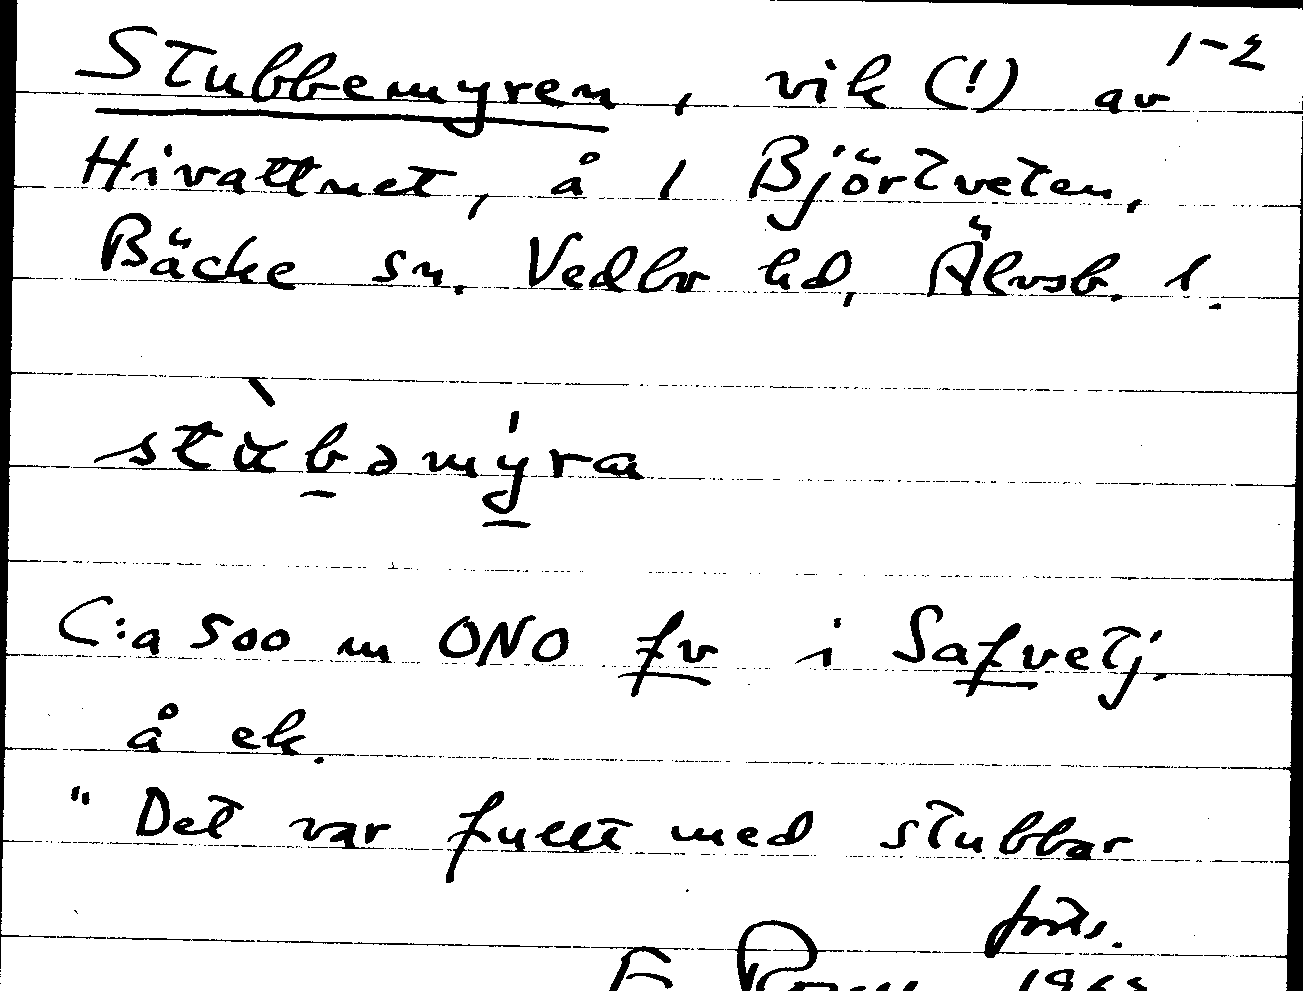 1-2
Stubbemyren, vik (!) av
Hivattnet, å 1 Björtveten,
Bäcke sn. Vedbo hd, Älvsb. l.
stàbəmy̍ra
C:a 500 m ONO fv i Safvetj.
å ek.
" Det var fullt med stubbar
forts.